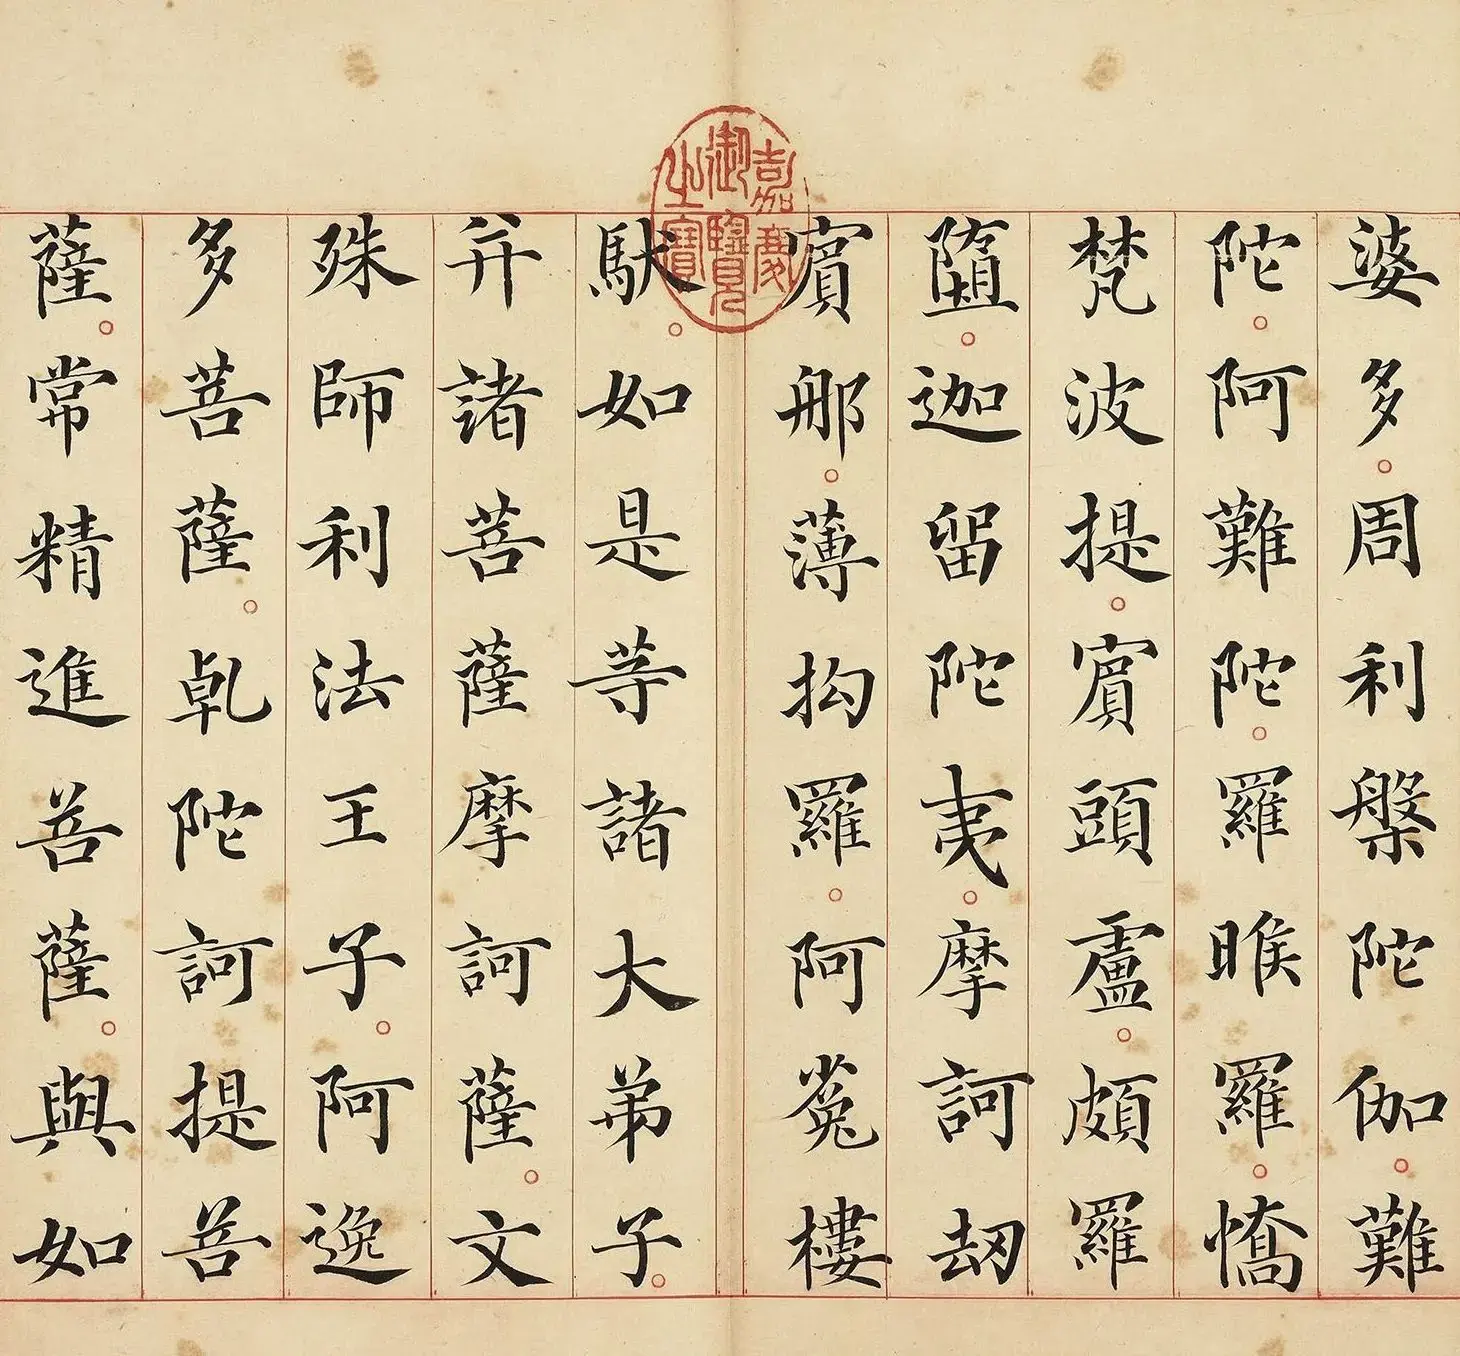 婆多。周利槃陀伽。難
陀。阿難陀。羅睺羅。憍
梵波提。賓頭盧。頗羅
墮。迦留陀夷。摩訶劫
賓那。薄拘羅。阿㝹樓
馱。如是等諸大弟子。
并諸菩薩摩訶薩。文
殊師利法王子。阿逸
多菩薩。乹陀訶提菩
薩。常精進菩薩。與如
嘉慶御覽之寶